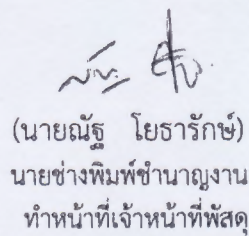 (นายณัฐ โยธารักษ์)
นายช่างพิมพ์ชำนาญงาน
ทำหน้าที่เจ้าหน้าที่พัสดุ